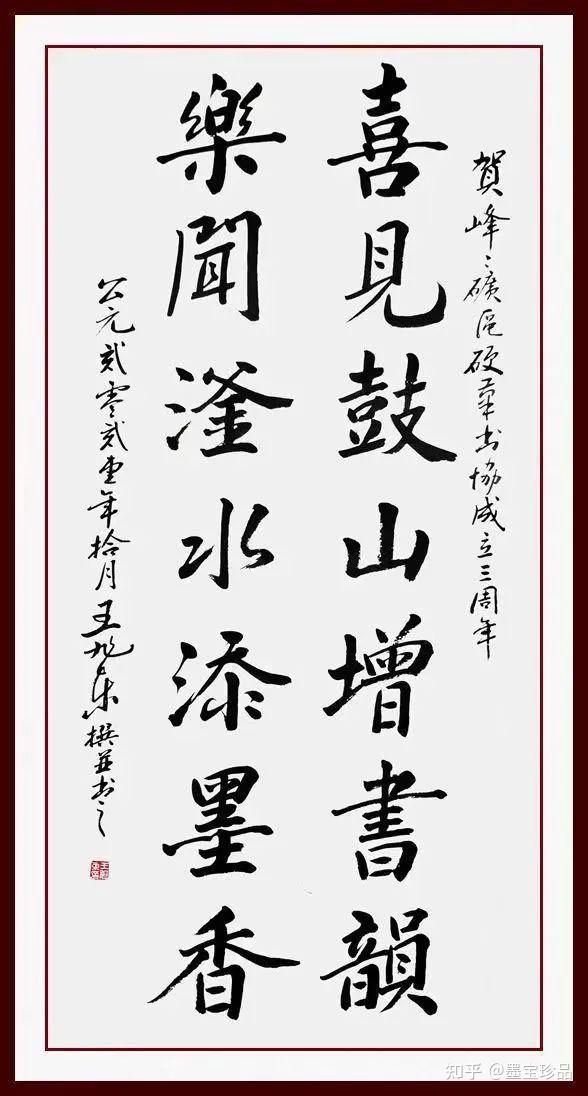 賀峰〻礦區硬筆书協成立三周年
喜見鼓山增書韻
樂聞滏水添墨香
公元贰零贰壹年拾月王旭东撰並书之
知乎 @墨宝珍品